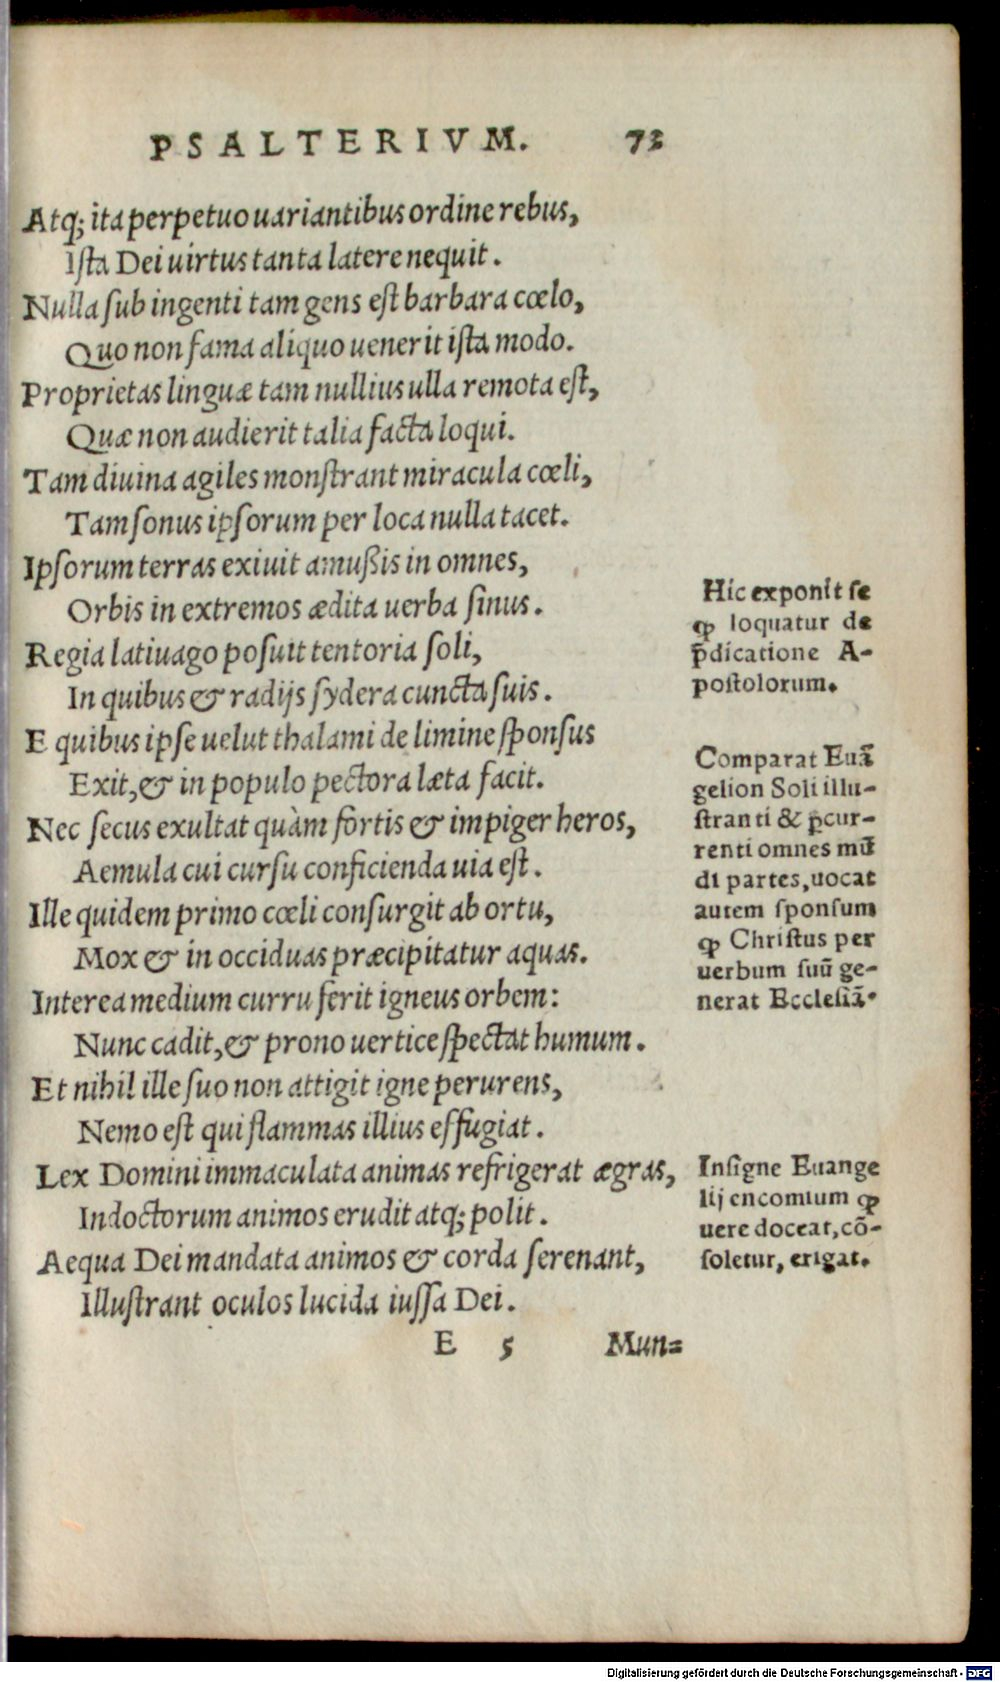 PSALTERIVM. 73
Atq; ita perpetuo uariantibus ordine rebus,
Ista Dei uirtus tanta latere nequit.
Nulla sub ingenti tam gens est barbara cœlo,
Quo non fama aliquo uenerit ista modo.
Proprietas linguæ tam nullius ulla remota est,
Quæ non audierit talia facta loqui.
Tam diuina agiles monstrant miracula cœli,
Tam sonus ipsorum per loca nulla tacet.
Ipsorum terras exiuit amußis in omnes,
Orbis in extremos ædita uerba sinus.
Regia latiuago posuit tentoria soli,
In quibus & radijs sydera cuncta suis.
E quibus ipse uelut thalami de limine sponsus
Exit, & in populo pectora læta facit.
Nec secus exultat quàm fortis & impiger heros,
Aemula cui cursu conficienda uia est.
Ille quidem primo cœli consurgit ab ortu,
Mox & in occiduas præcipitatur aquas.
Interea medium curru ferit igneus orbem:
Nunc cadit, & prono uertice spectat humum.
Et nihil ille suo non attigit igne perurens,
Nemo est qui flammas illius effugiat.
Lex Domini immaculata animas refrigerat ægras,
Indoctorum animos erudit atq; polit.
Aequa Dei mandata animos & corda serenant,
Illustrant oculos lucida iussa Dei.
E 5 Mun=
Hic exponit se
ꝙ loquatur de
p̄dicatione A-
postolorum.
Comparat Euā
gelion Soli illu-
stranti & p̄cur-
renti omnes mū
di partes, uocat
autem sponsum
ꝙ Christus per
uerbum suū ge-
nerat Ecclesiā.
Insigne Euange
lij encomium ꝙ
uere doceat, cō-
soletur, erigat.
Digitalisierung gefördert durch die Deutsche Forschungsgemeinschaft - DFG